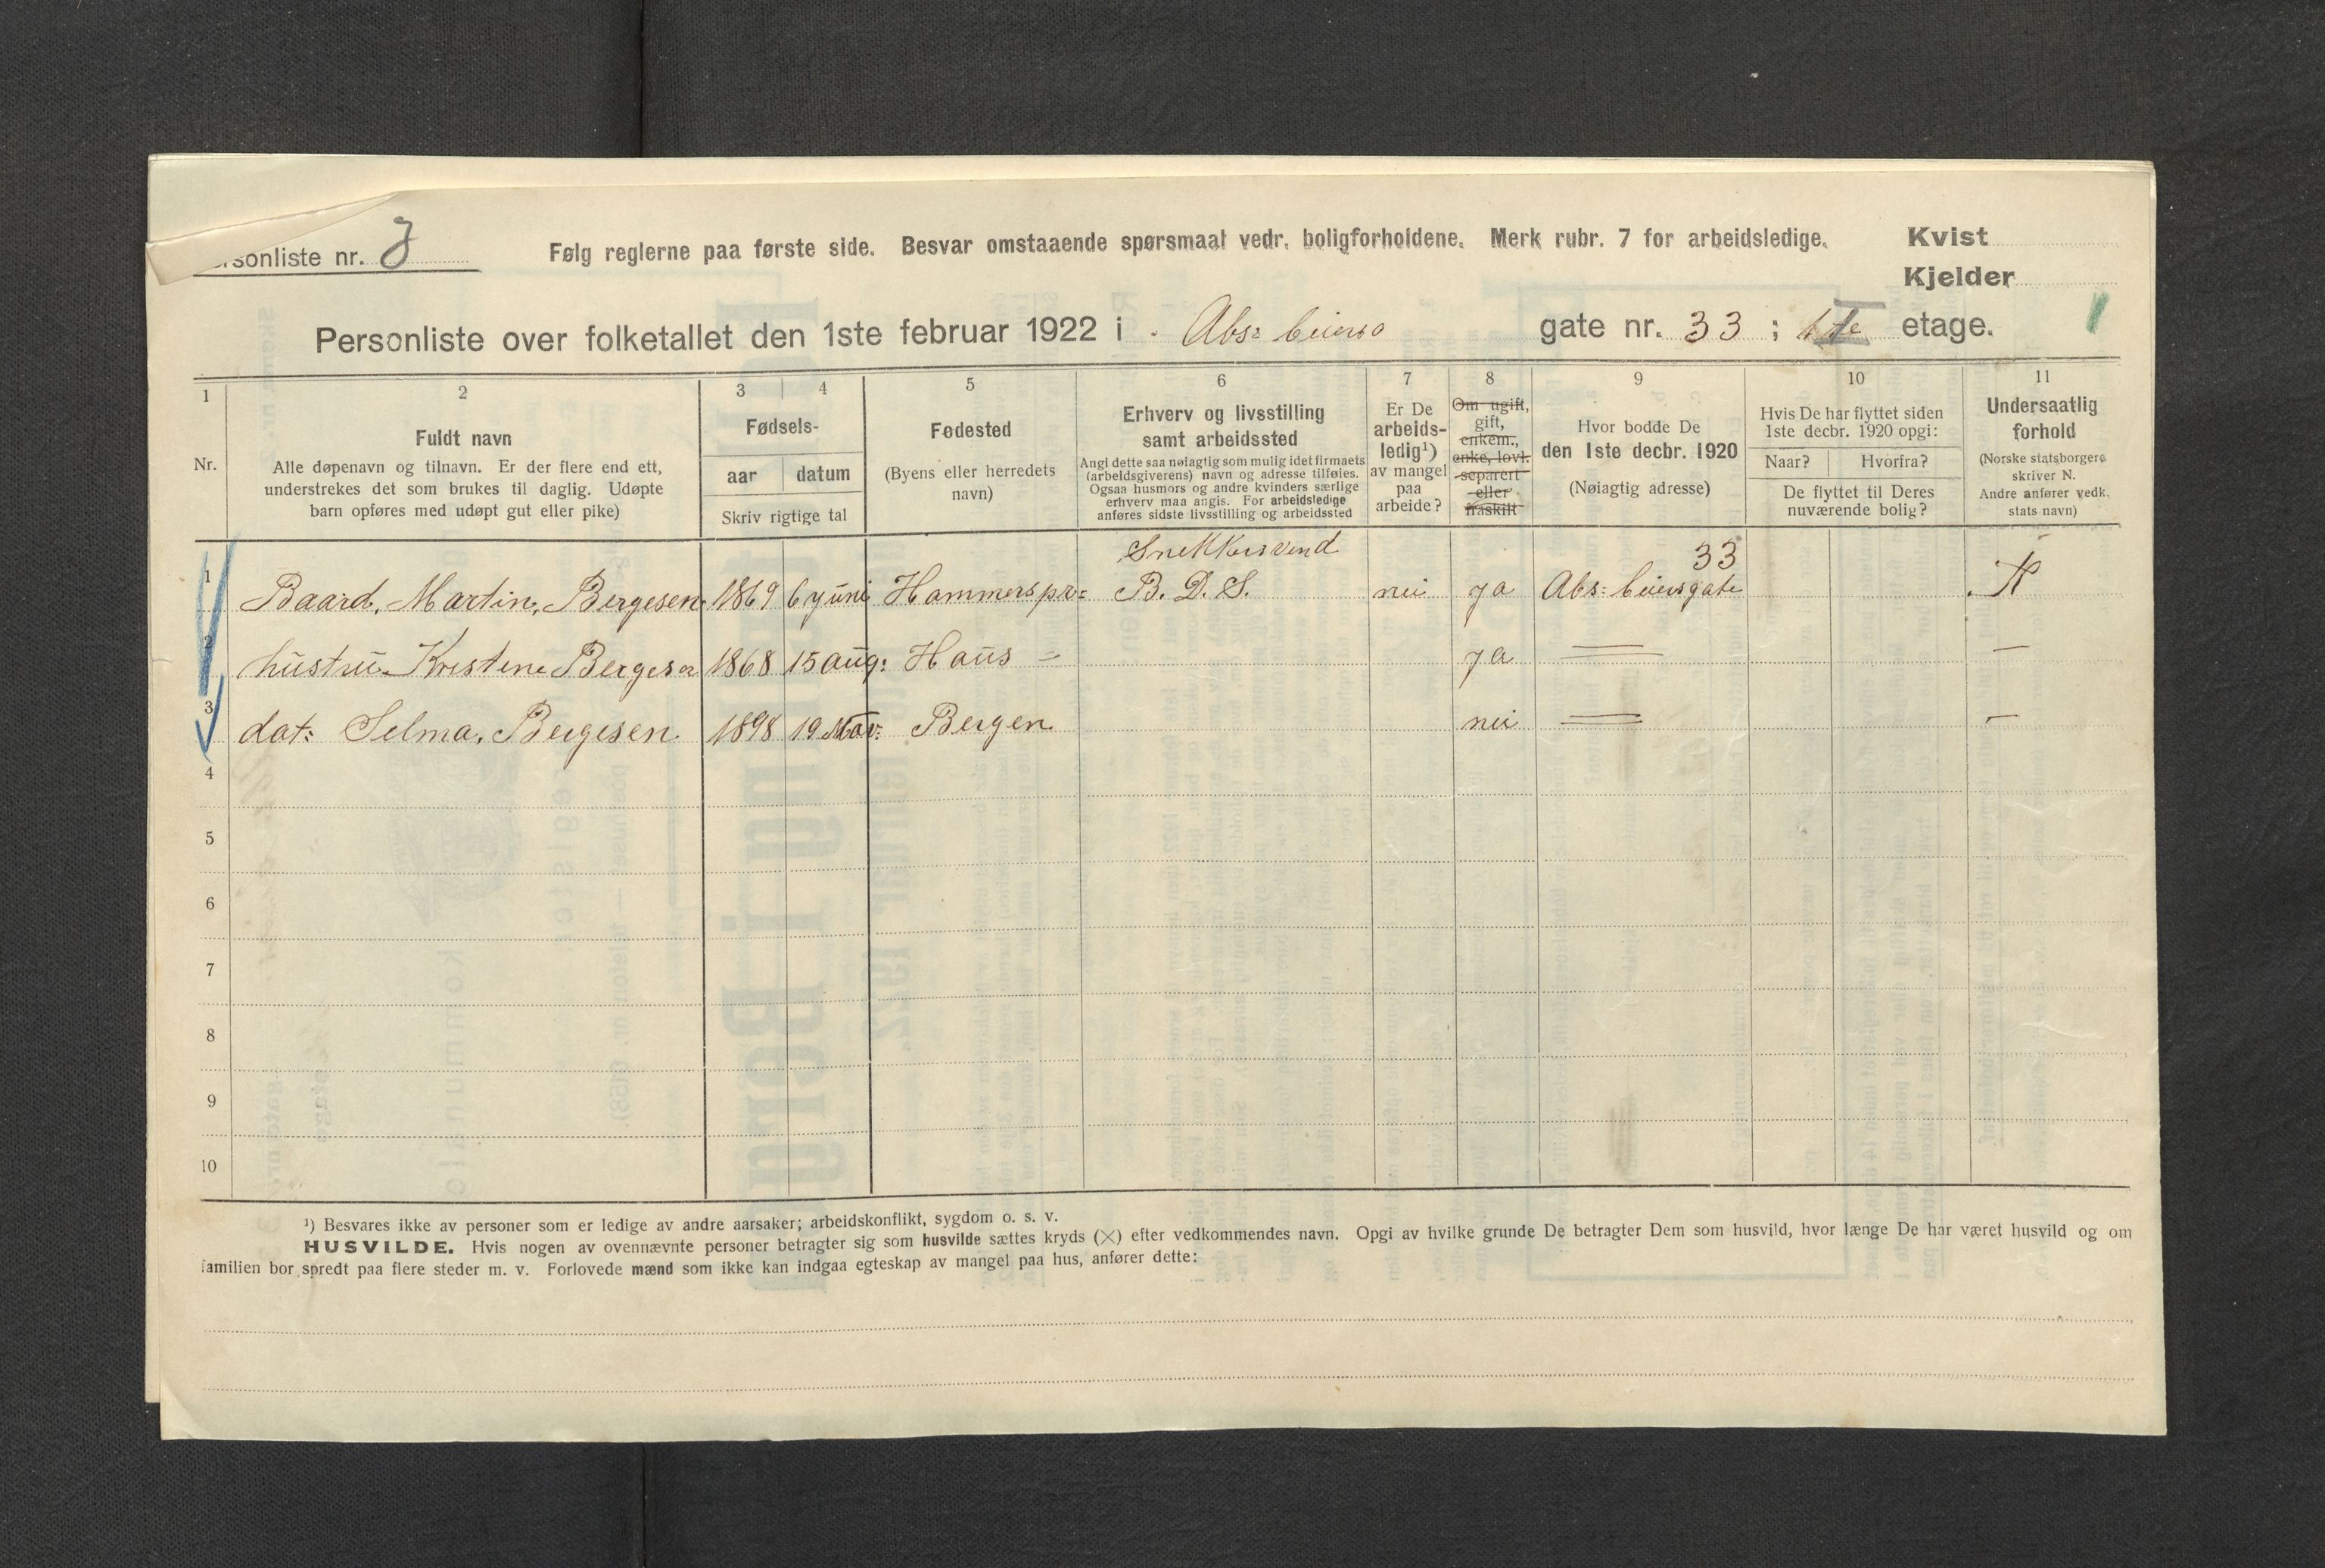 sonliste nr. J Følg reglerne paa første side. Besvar omstaaende spørsmaal vedr. boligforholdene. Merk rubr. 7 for arbeidsledige. Kvist
Kjelder
Personliste over folketallet den 1ste februar 1922 i Abs: beiers gate nr. 33 ; I etage.
1 2 3 4 5 6 7 8 9 10 11
Nr.
Fuldt navn
Alle døpenavn og tilnavn. Er der flere end ett,
understrekes det som brukes til daglig. Udøpte
barn opføres med udøpt gut eller pike)
Fødsels-
aar datum
Skriv rigtige tal
Fødested
(Byens eller herredets
navn)
Erhverv og livsstilling
samt arbeidssted
Angi dette saa nøiagtig som mulig idet firmaets
(arbeidsgiverens) navn og adresse tilføies.
Ogsaa husmors og andre kvinders særlige
erhverv maa angis. For arbeidsledige
anføres sidste livsstilling og arbeidssted
Er De
arbeids-
ledig¹)
av mangel
paa
arbeide?
Om ugift,
gift,
enkem.,
enke, lovl.
separert
eller
fraskilt
Hvor bodde De
den 1ste decbr. 1920
(Nøiagtig adresse)
Hvis De har flyttet siden
1ste decbr. 1920 opgi:
Naar? Hvorfra?
De flyttet til Deres
nuværende bolig?
Undersaatlig
forhold
(Norske statsborgere
skriver N.
Andre anfører vedk.
stats navn)
Snekkersvend 33
1 Baard, Martin, Bergesen 1869 6 juni Hammerspr: B. D. S. nei ja Abs: beiersgate N
2 hustru Kristine Bergesen 1868 15 aug: Haus = ja — —
3 dat: Selma, Bergesen 1898 19 Nov: Bergen nei — —
4
5
6
7
8
9
10
¹) Besvares ikke av personer som er ledige av andre aarsaker; arbeidskonflikt, sygdom o. s. v.
HUSVILDE. Hvis nogen av ovennævnte personer betragter sig som husvilde sættes kryds (×) efter vedkommendes navn. Opgi av hvilke grunde De betragter Dem som husvild, hvor længe De har været husvild og om
familien bor spredt paa flere steder m. v. Forlovede mænd som ikke kan indgaa egteskap av mangel paa hus, anfører dette: